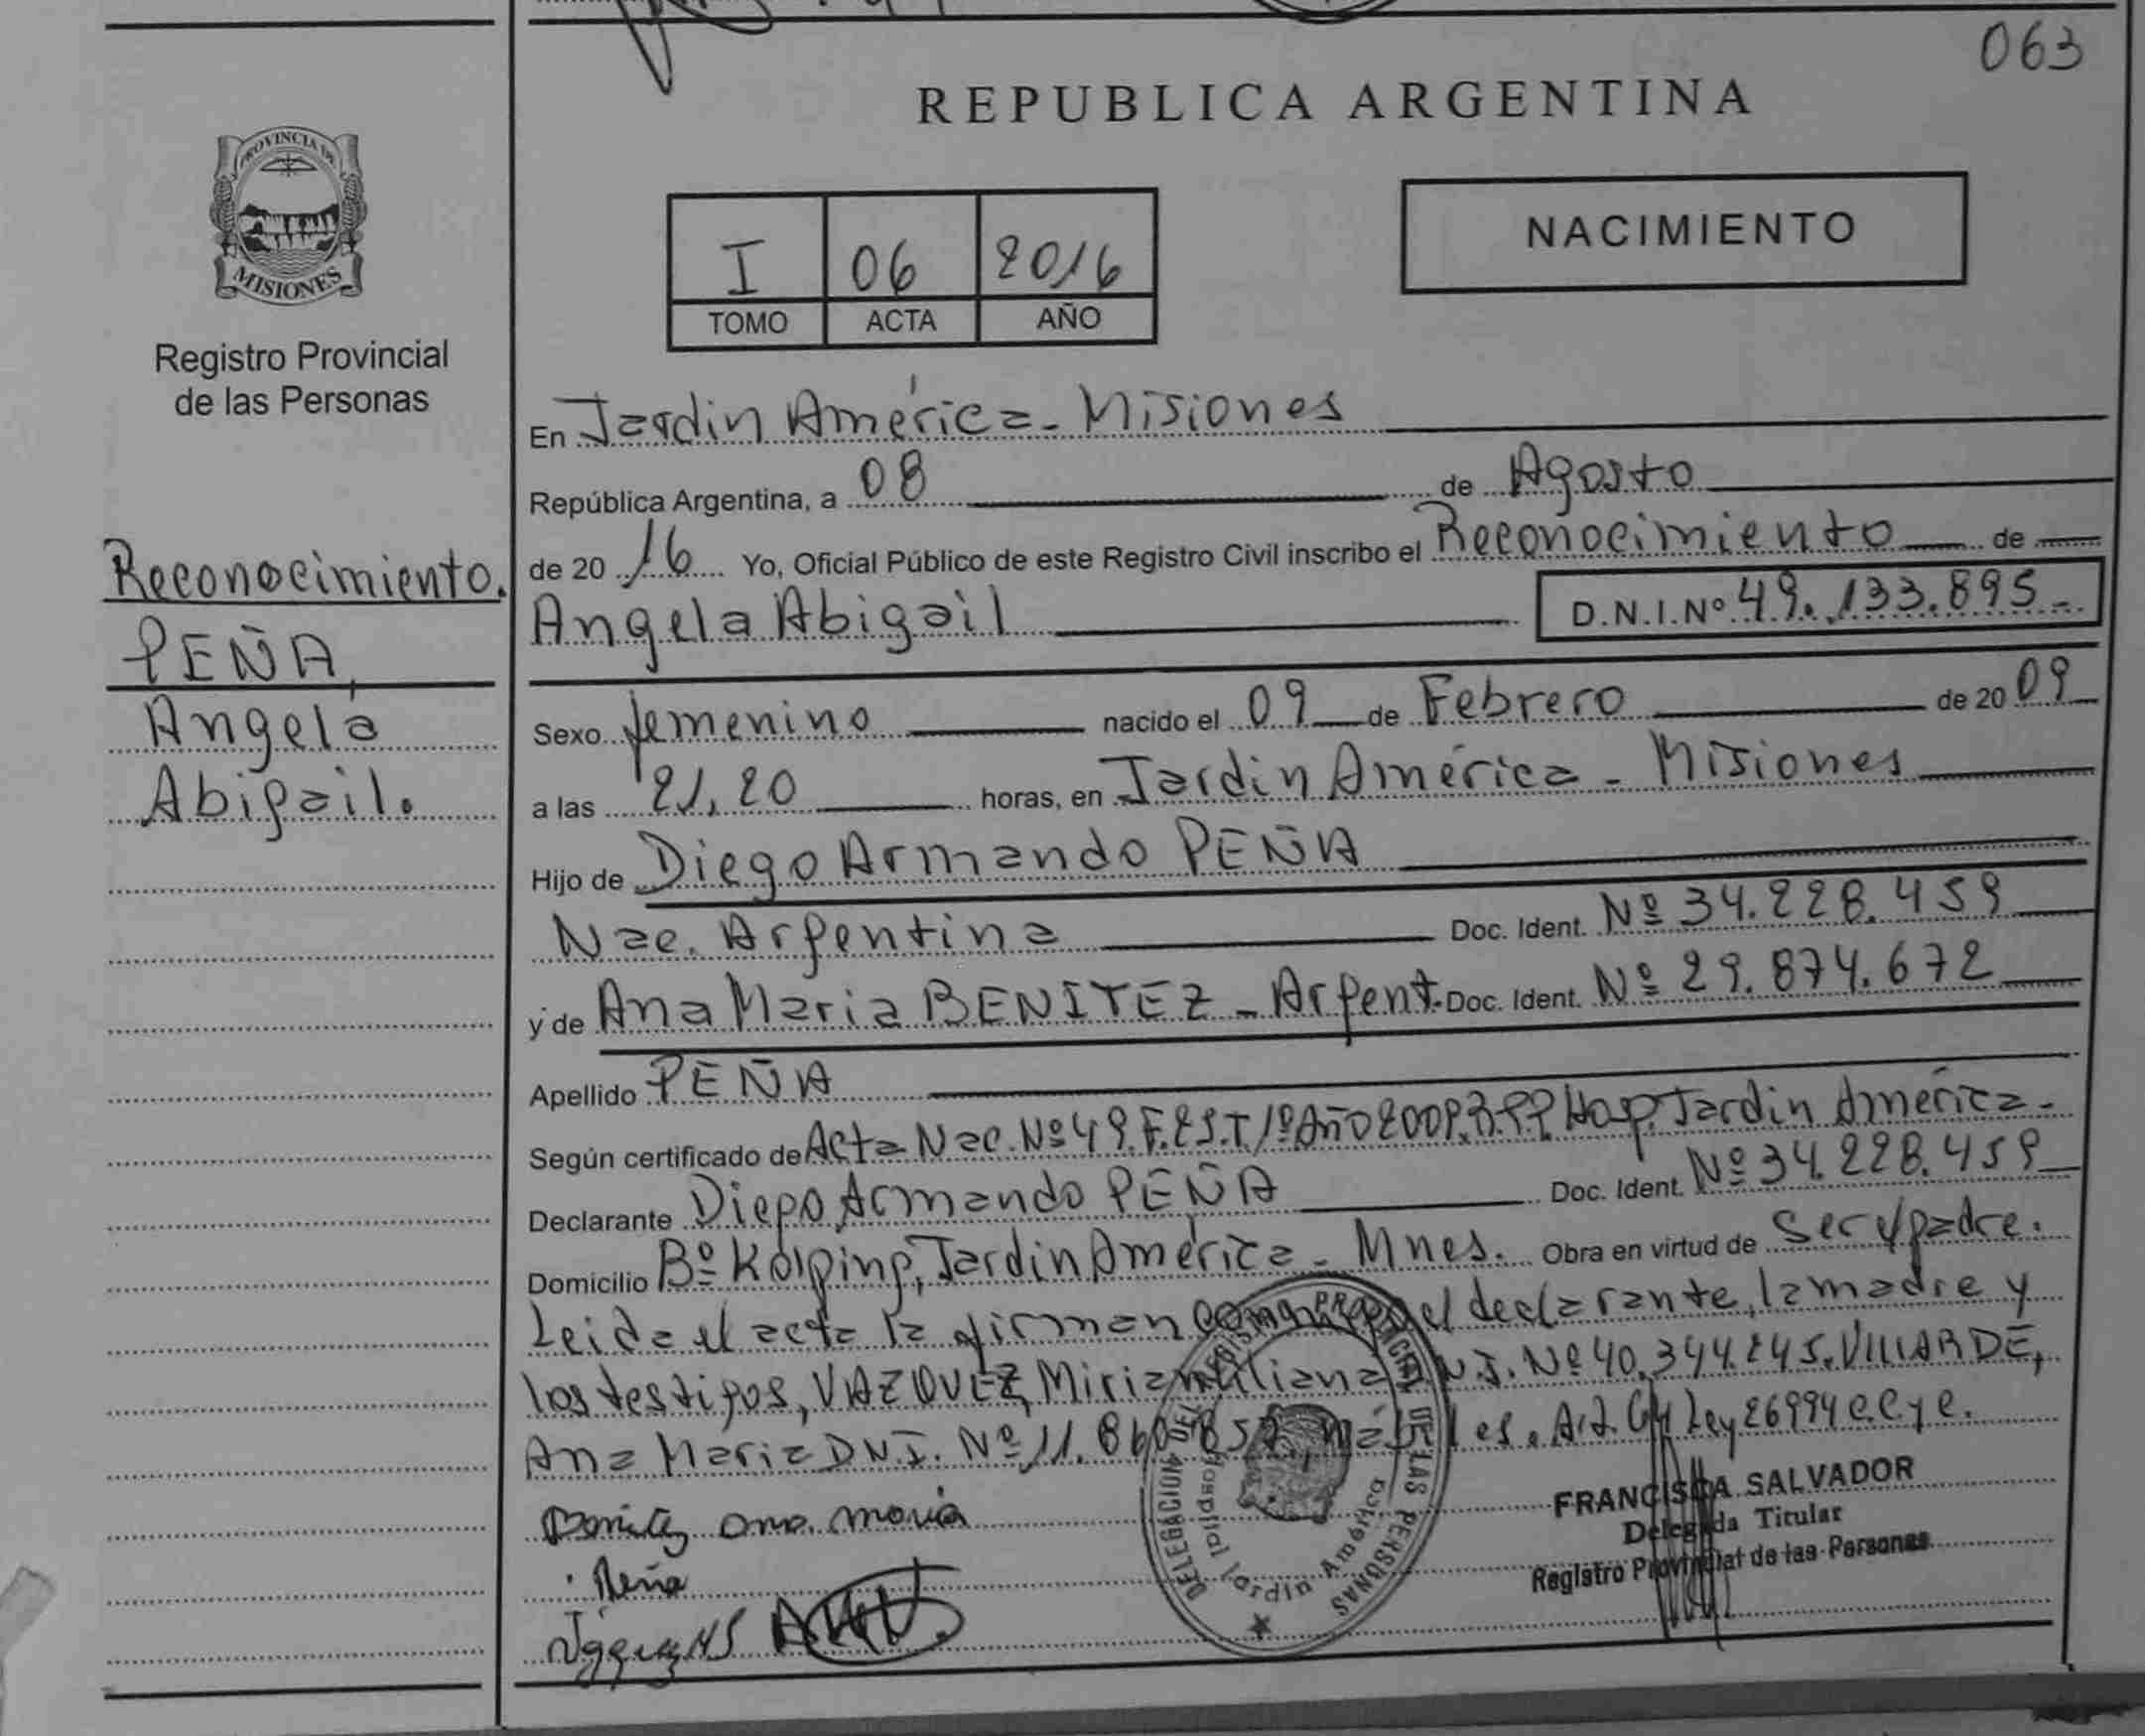 063
REPUBLICA ARGENTINA
PROVINCIA DE
MISIONES
Registro Provincial
de las Personas
I 06 2016
TOMO ACTA AÑO
NACIMIENTO
Reconocimiento.
PEÑA,
Angela
Abigail.
En Jardin América - Misiones
República Argentina, a 08 de Agosto
de 20 16 Yo, Oficial Público de este Registro Civil inscribo el Reconocimiento de
Angela Abigail D.N.I.Nº 49.133.895-
Sexo femenino nacido el 09 de Febrero de 20 09
a las 21,20 horas, en Jardin América - Misiones
Hijo de Diego Armando PEÑA
Nac. Argentina Doc. Ident. Nº 34.228.459
y de Ana Maria BENITEZ - Argent. Doc. Ident. Nº 29.874.672
Apellido PEÑA
Según certificado de Acta Nac. Nº 49. F. 25. T/1º Año 2009. R.P.P. Hosp. Jardin América -
Declarante Diego Armando PEÑA Doc. Ident. Nº 34.228.459
Domicilio Bº Kolping, Jardin América - Mnes. Obra en virtud de ser padre.
Leida el acta la firman el declarante, la madre y
los testigos, VAZQUEZ, Mirian Liliana D.N.I. Nº 40.344.245. VILLARDE,
Ana Maria DNI. Nº 11. hábiles. Art. Ley 26994 C.C y C.
DELEGACION DEL REGISTRO PROVINCIAL DE LAS PERSONAS
Hospital Jardín América
Benitez ana maria
Peña
FRANCISCA SALVADOR
Delegada Titular
Registro Provincial de las Personas